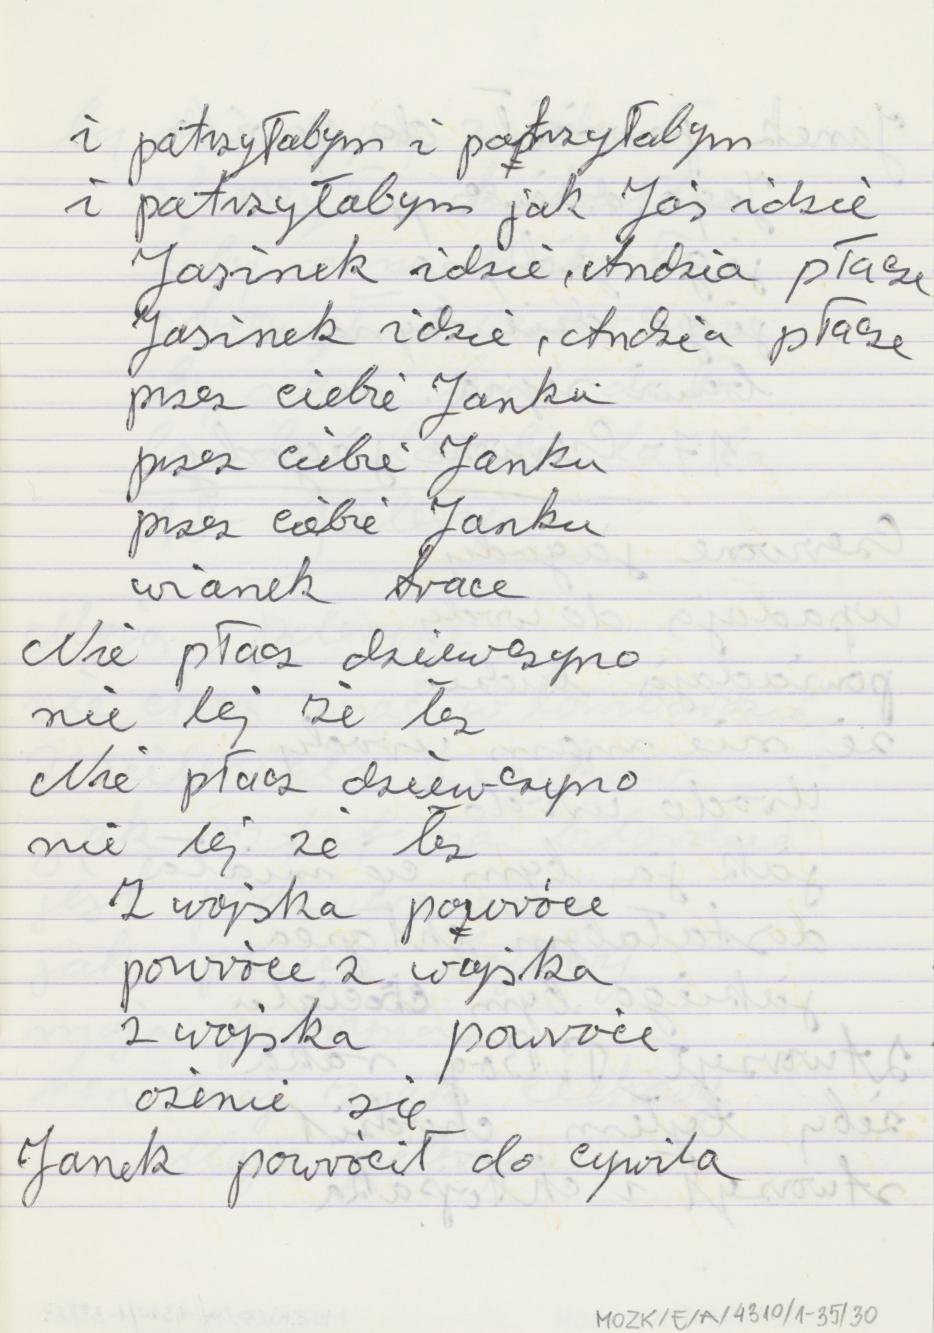 i patrzyłabym i patrzyłabym
i patrzyłabym jak Jaś idzie
Jasinek idzie, Andzia płacze
Jasinek idzie, Andzia płacze
przez ciebie Janku
przez ciebie Janku
przez ciebie Janku
wianek trace
Nie płacz dziewczyno
nie lej że łez
Nie płacz dziewczyno
nie lej że łez
Z wojska powróce
powróce z wojska
z wojska powróce
ożenie się
Janek powrócił do cywila
MOZK/E/A/4310/1-35/30